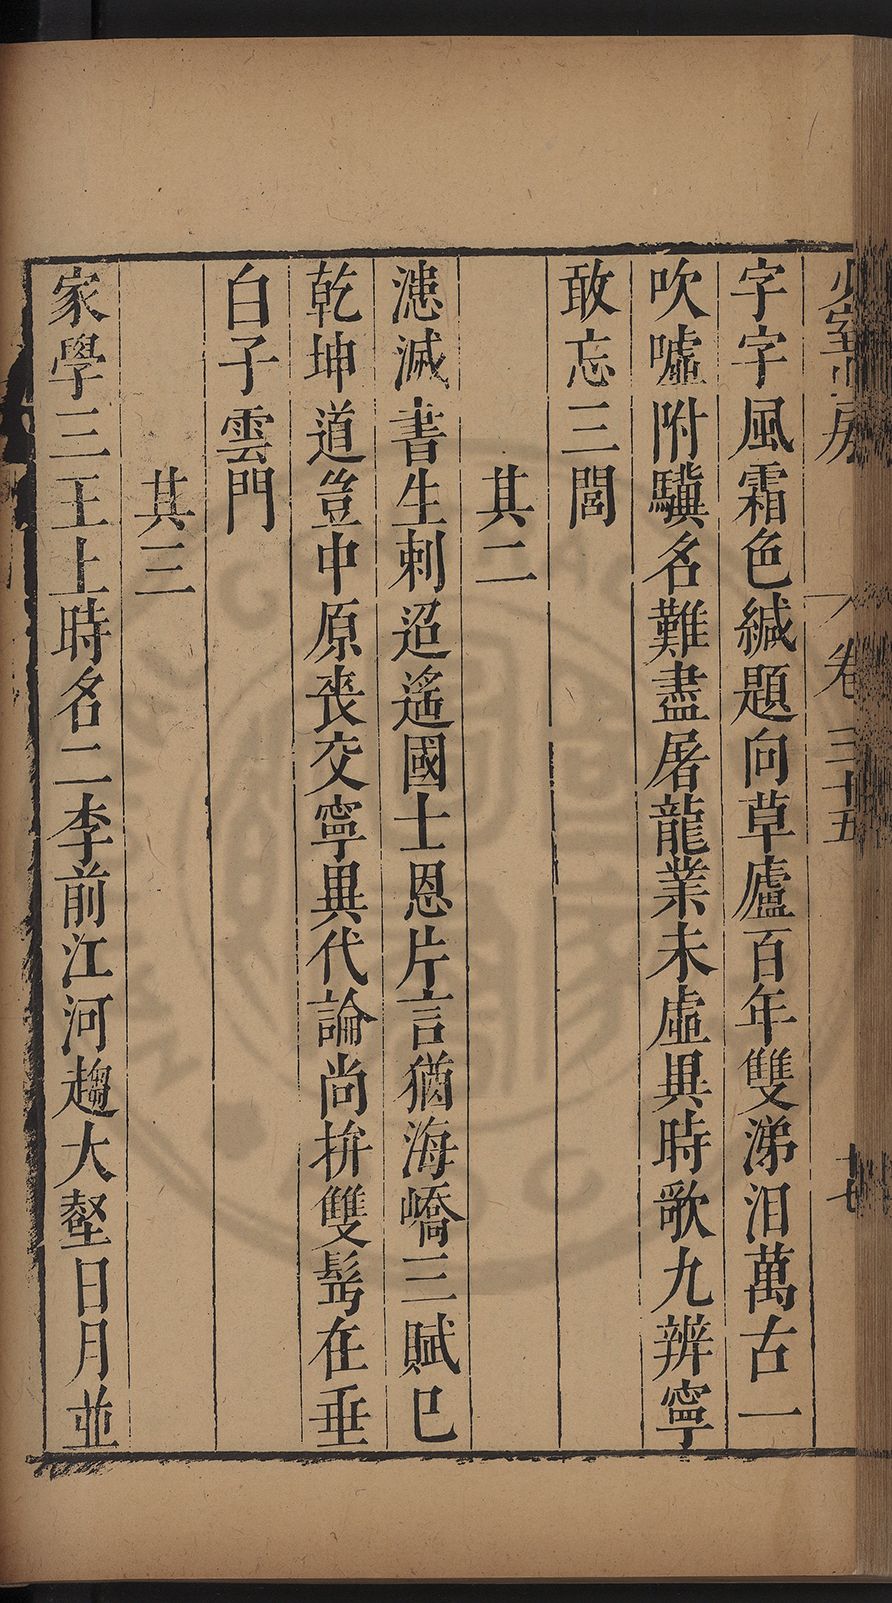 少室山房
卷三十五
十七
字字風霜色緘題向草廬百年雙涕泪萬古一
吹噓附驥名難盡屠龍業未虛異時歌九辨寧
敢忘三閭
其二
漶滅書生刺迢遙國士恩片言猶海嶠三賦巳
乾坤道豈中原喪交寧異代論尚拚雙髩在垂
白子雲門
其三
家學三王上時名二李前江河趨大壑日月並